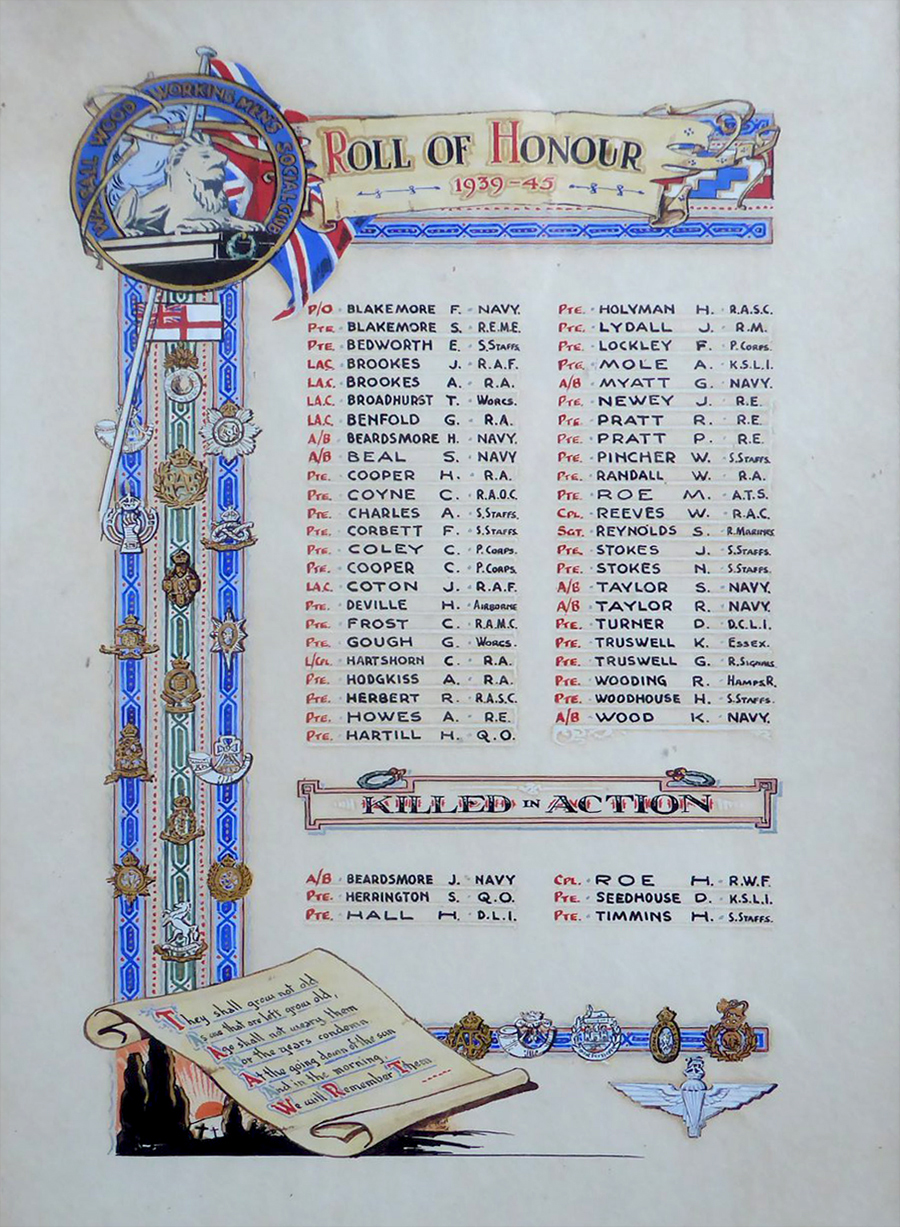 WALSALL WOOD WORKING MEN'S SOCIAL CLUB
ROLL OF HONOUR
1939-45
P/O BLAKEMORE F. NAVY.
Pte. BLAKEMORE S. R.E.M.E.
Pte. BEDWORTH E. S.Staffs.
LAC. BROOKES J. R.A.F.
LA.C. BROOKES A. R.A.
LA.C. BROADHURST T. Worcs.
LA.C. BENFOLD G. R.A.
A/B BEARDSMORE H. NAVY.
A/B BEAL S. NAVY
Pte. COOPER H. R.A.
Pte. COYNE C. R.A.O.C.
Pte. CHARLES A. S.Staffs.
Pte. CORBETT F. S.Staffs.
Pte. COLEY C. P.Corps.
Pte. COOPER C. P.Corps.
LA.C. COTON J. R.A.F.
Pte. DEVILLE H. Airborne
Pte. FROST C. R.A.M.C.
Pte. GOUGH G. Worcs.
L/Cpl. HARTSHORN C. R.A.
Pte. HODGKISS A. R.A.
Pte. HERBERT R. R.A.S.C.
Pte. HOWES A. R.E.
Pte. HARTILL H. Q.O.
Pte. HOLYMAN H. R.A.S.C.
Pte. LYDALL J. R.M.
Pte. LOCKLEY F. P.Corps.
Pte. MOLE A. K.S.L.I.
A/B MYATT G. NAVY.
Pte. NEWEY J. R.E.
Pte. PRATT R. R.E.
Pte. PRATT P. R.E.
Pte. PINCHER W. S.Staffs.
Pte. RANDALL W. R.A.
Pte. ROE M. A.T.S.
Cpl. REEVES W. R.A.C.
Sgt. REYNOLDS S. R.Marines
Pte. STOKES J. S.Staffs.
Pte. STOKES N. S.Staffs.
A/B TAYLOR S. NAVY.
A/B TAYLOR R. NAVY.
Pte. TURNER D. D.C.L.I.
Pte. TRUSWELL K. Essex.
Pte. TRUSWELL G. R.Signals
Pte. WOODING R. Hamps.R.
Pte. WOODHOUSE H. S.Staffs.
A/B WOOD K. NAVY.
KILLED IN ACTION
A/B BEARDSMORE J. NAVY
Pte. HERRINGTON S. Q.O.
Pte. HALL H. D.L.I.
Cpl. ROE H. R.W.F.
Pte. SEEDHOUSE D. K.S.L.I.
Pte. TIMMINS H. S.Staffs.
They shall grow not old
As we that are left grow old,
Age shall not weary them
Nor the years condemn
At the going down of the sun
And in the morning.
We will Remember Them
ATS